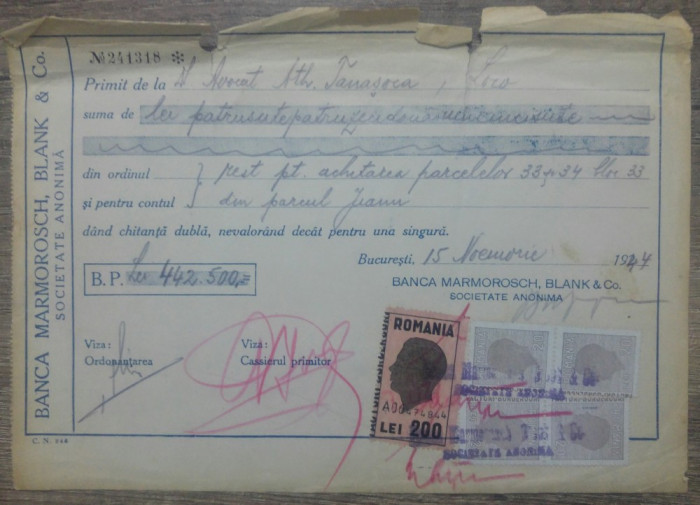 BANCA MARMOROSCH, BLANK & Co.
SOCIETATE ANONIMĂ
№ 241318 ✻
Primit de la D. Avocat Ath. Tănăsoca, Loco
suma de Lei patrusutepatruzecidouămiicincisute
din ordinul } rest pt. achitarea parcelelor 33 și 34 bloc 33
și pentru contul } din parcul Jianu
dând chitanță dublă, nevalorând decât pentru una singură.
București, 15 Noemorie 1947
B.P. Lei 442.500,=
BANCA MARMOROSCH, BLANK & Co.
SOCIETATE ANONIMA
Viza:
Ordonanțarea
Viza:
Cassierul primitor
ROMANIA
LEI 200
C. N. 248